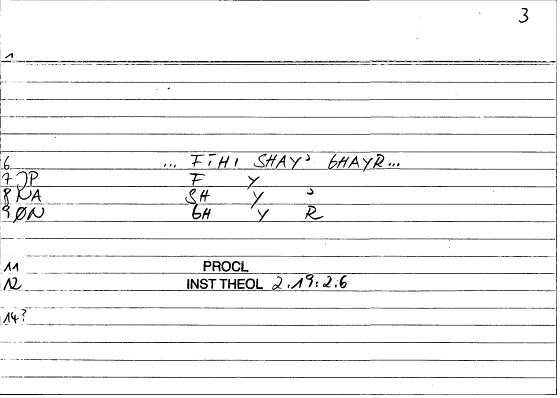 3
1
6 ... FĪHI SHAYʾ GHAYR...
7 JP F Y
8 NA SH Y ʾ
9 ØN GH Y R
11 PROCL
12 INST THEOL 2.19:2.6
14?